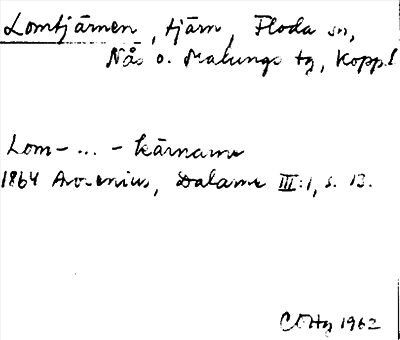 Lomtjärnen, tjärn, Floda sn,
Nås o. Malungs tg, Kopp.l
Lom- ... - kärnarne
1864 Arosenius, Dalarne III:1, s. 13.
1962